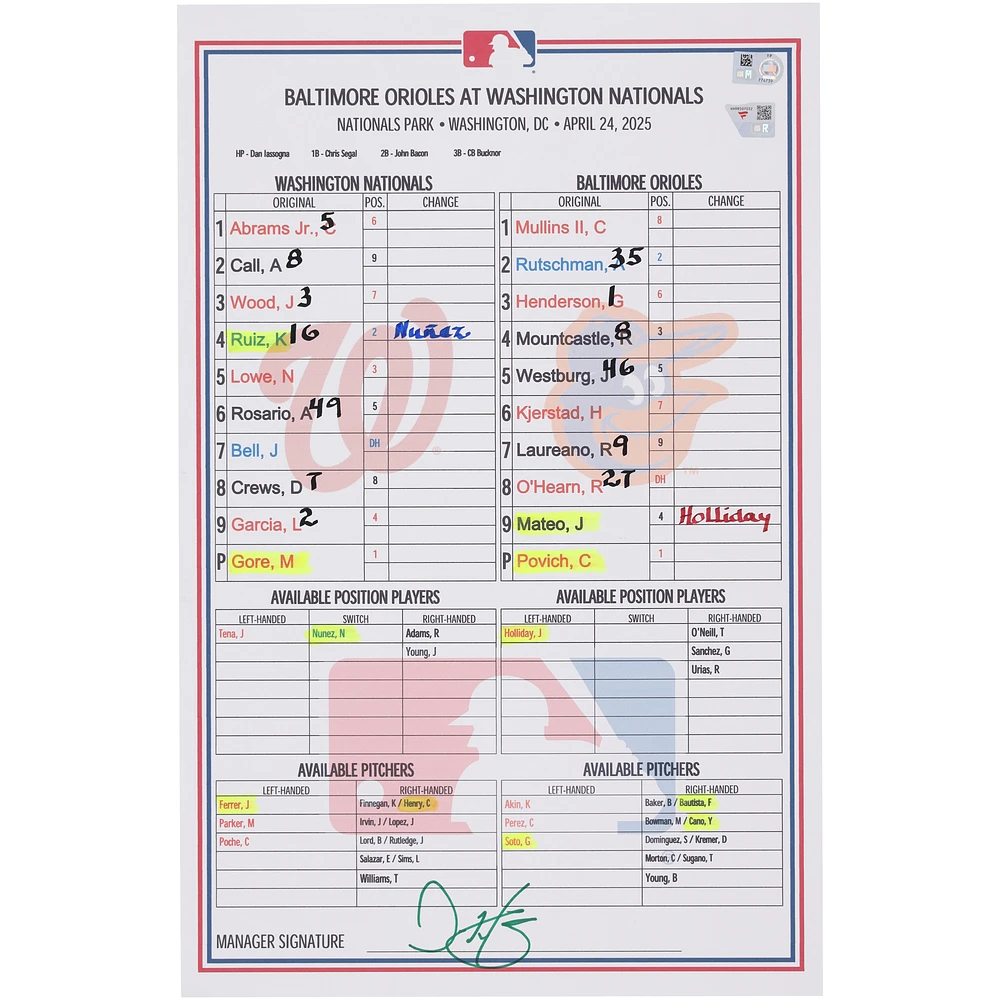 BALTIMORE ORIOLES AT WASHINGTON NATIONALS
NATIONALS PARK • WASHINGTON, DC • APRIL 24, 2025
HP - Dan Iassogna 1B - Chris Segal 2B - John Bacon 3B - CB Bucknor
WASHINGTON NATIONALS
ORIGINAL POS. CHANGE
1 Abrams Jr., C 5 6
2 Call, A 8 9
3 Wood, J 3 7
4 Ruiz, K 16 2 Nuñez
5 Lowe, N 3
6 Rosario, A 49 5
7 Bell, J DH
8 Crews, D T 8
9 Garcia, L 2 4
P Gore, M 1
BALTIMORE ORIOLES
ORIGINAL POS. CHANGE
1 Mullins II, C 8
2 Rutschman, A 35 2
3 Henderson, G 1 6
4 Mountcastle, R 8 3
5 Westburg, J 46 5
6 Kjerstad, H 7
7 Laureano, R 9 9
8 O'Hearn, R 2T DH
9 Mateo, J 4 Holliday
P Povich, C 1
AVAILABLE POSITION PLAYERS
LEFT-HANDED SWITCH RIGHT-HANDED
Tena, J Nunez, N Adams, R
Young, J
AVAILABLE POSITION PLAYERS
LEFT-HANDED SWITCH RIGHT-HANDED
Holliday, J O'Neill, T
Sanchez, G
Urias, R
AVAILABLE PITCHERS
LEFT-HANDED RIGHT-HANDED
Ferrer, J Finnegan, K / Henry, C
Parker, M Irvin, J / Lopez, J
Poche, C Lord, B / Rutledge, J
Salazar, E / Sims, L
Williams, T
AVAILABLE PITCHERS
LEFT-HANDED RIGHT-HANDED
Akin, K Baker, B / Bautista, F
Perez, C Bowman, M / Cano, Y
Soto, G Dominguez, S / Kremer, D
Morton, C / Sugano, T
Young, B
MANAGER SIGNATURE